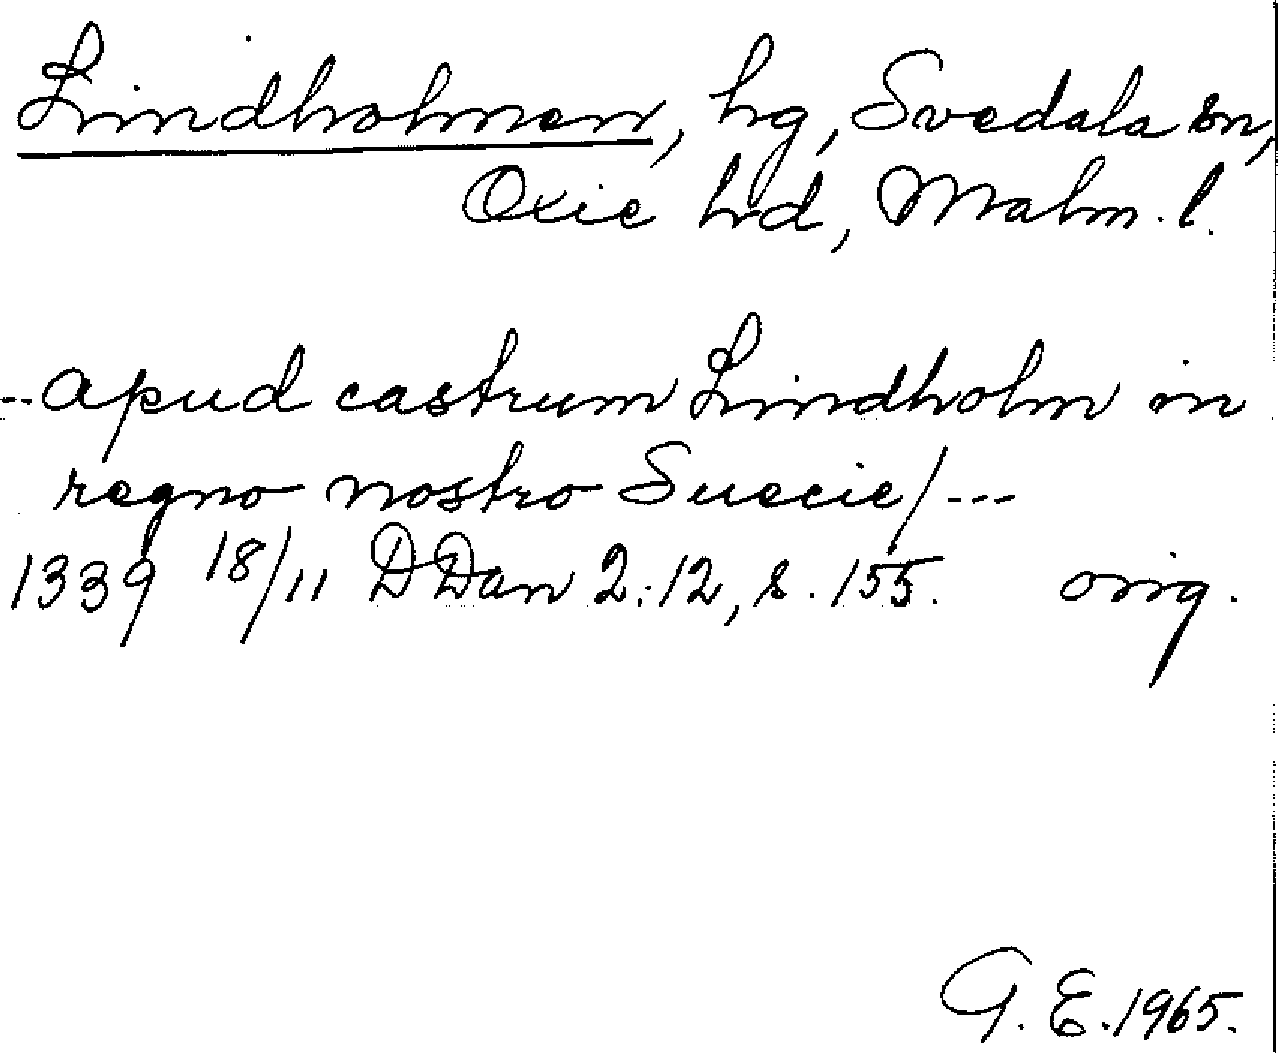 Lindholmen, hg, Svedala sn,
Oxie hd, Malm. l.
--apud castrum Lindholm in
regno nostro Suecie/---
1339 18/11 DDan 2:12, s. 155. orig.
G. E. 1965.